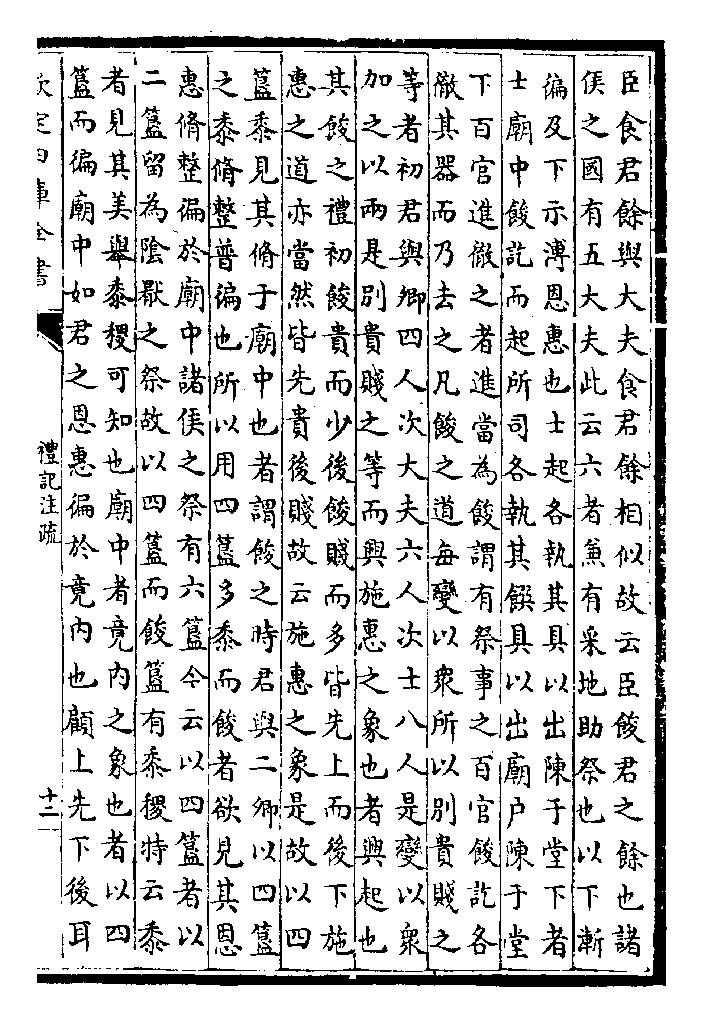 臣食君餘與大夫食君餘相似故云臣餕君之餘也諸
侯之國有五大夫此云六者兼有采地助祭也以下漸
徧及下示溥恩惠也士起各執其具以出陳于堂下者
士廟中餕訖而起所司各執其饌具以出廟户陳于堂
下百官進徹之者進當為餕謂有祭事之百官餕訖各
徹其器而乃去之凡餕之道每變以衆所以别貴賤之
等者初君與卿四人次大夫六人次士八人是變以衆
加之以兩是别貴賤之等而興施惠之象也者興起也
其餕之禮初餕貴而少後餕賤而多皆先上而後下施
惠之道亦當然皆先貴後賤故云施惠之象是故以四
簋黍見其脩于廟中也者謂餕之時君與二卿以四簋
之黍脩整普徧也所以用四簋多黍而餕者欲見其恩
惠脩整徧於廟中諸侯之祭有六簋今云以四簋者以
二簋留為陰厭之祭故以四簋而餕簋有黍稷特云黍
者見其美舉黍稷可知也廟中者竟内之象也者以四
簋而徧廟中如君之恩惠徧於竟内也顧上先下後耳
欽定四庫全書
禮記注疏
十二